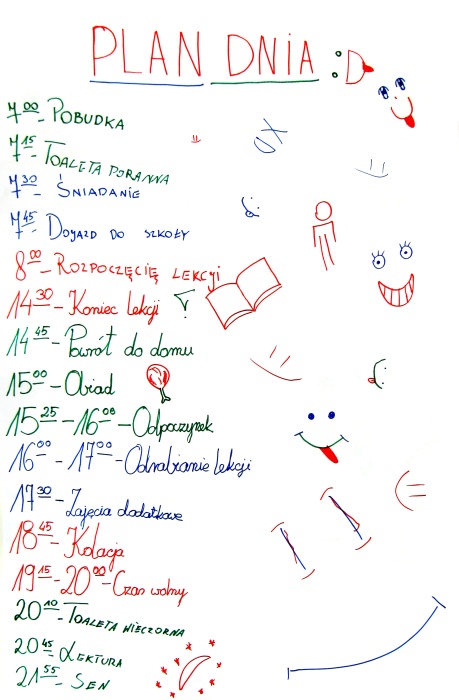 PLAN DNIA :D
7⁰⁰ - POBUDKA
7¹⁵ - TOALETA PORANNA
7³⁰ - ŚNIADANIE
7⁴⁵ - DOJAZD DO SZKOŁY
8⁰⁰ - ROZPOCZĘCIĘ LEKCYI
14³⁰ - Koniec lekcji
14⁴⁵ - Powrót do domu
15⁰⁰ - Obiad
15²⁵ - 16⁰⁰ - Odpoczynek
16⁰⁰ - 17⁰⁰ - Odrabianie lekcji
17³⁰ - Zajęcia dodatkowe
18⁴⁵ - Kolacja
19¹⁵ - 20⁰⁰ - Czas wolny
20¹⁰ - TOALETA WIECZORNA
20⁴⁵ - LEKTURA
21⁵⁵ - SEN